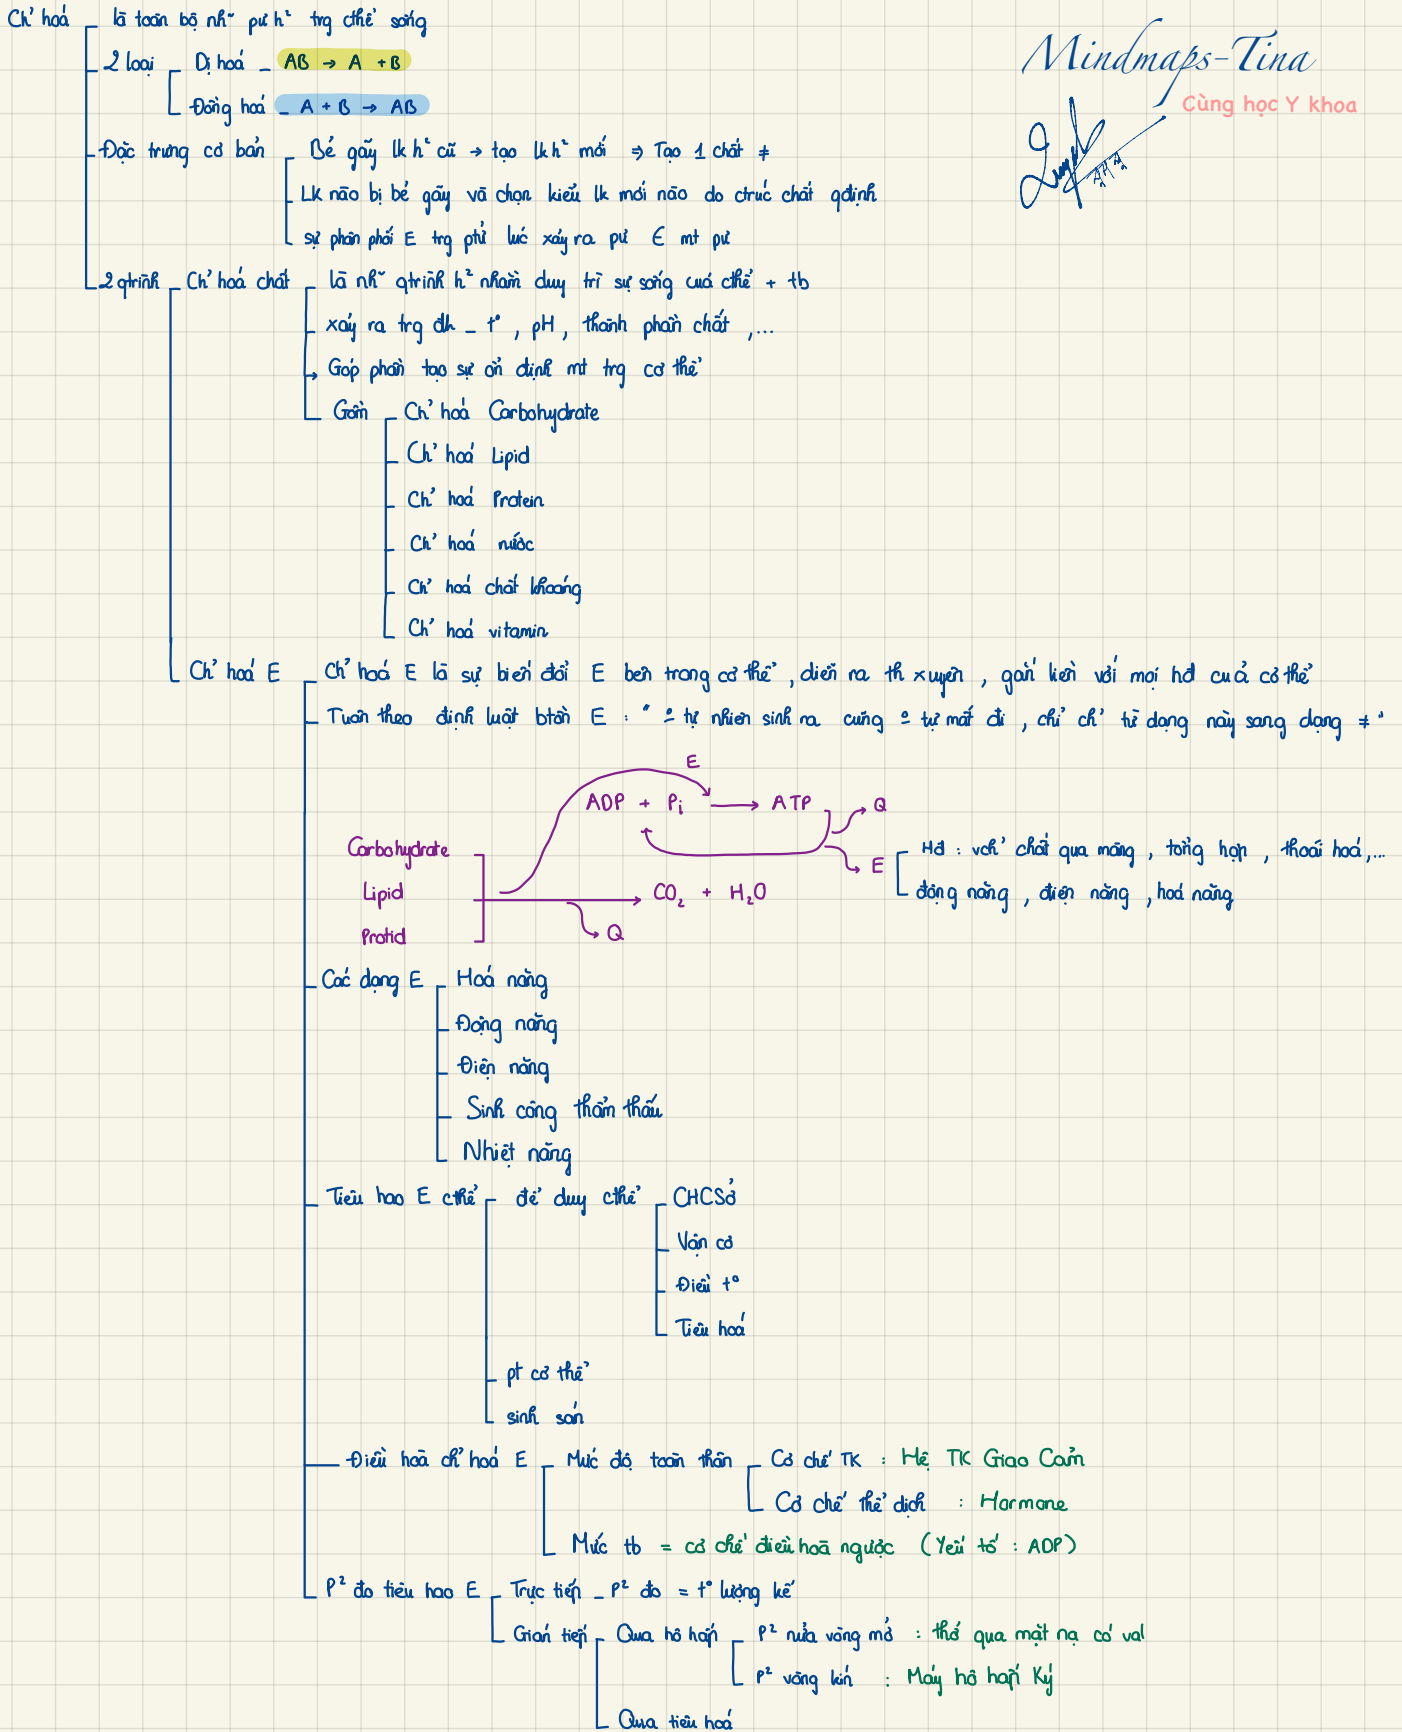 Ch' hoá
là toàn bộ nh~ pư h² trg cthể sống
2 loại
Dị hoá _ AB → A + B
Đồng hoá _ A + B → AB
Mindmaps-Tina
Cùng học Y khoa
Đặc trưng cơ bản
Bẻ gãy lk h² cũ → tạo lk h² mới ⇒ Tạo 1 chất ≠
Lk nào bị bẻ gãy và chọn kiểu lk mới nào do ctrúc chất qđịnh
sự phân phối E trg ptử lúc xảy ra pư ∈ mt pư
2 qtrình
Ch' hoá chất
là nh~ qtrình h² nhằm duy trì sự sống cuả cthể + tb
xảy ra trg đk _ t°, pH, thành phần chất,...
Góp phần tạo sự ổn định mt trg cơ thể
Gồm
Ch' hoá Carbohydrate
Ch' hoá Lipid
Ch' hoá Protein
Ch' hoá nước
Ch' hoá chất khoáng
Ch' hoá vitamin
Ch' hoá E
Ch' hoá E là sự biến đổi E bên trong cơ thể, diễn ra th xuyên, gắn liền với mọi hđ cuả cơ thể
Tuân theo định luật btoàn E : " = tự nhiên sinh ra cũng = tự mất đi, chỉ ch' từ dạng này sang dạng ≠ "
E
ADP + Pi → ATP
Q
Carbohydrate
Hđ : vch' chất qua màng, tổng hợp, thoái hoá,...
E
Lipid
CO₂ + H₂O
động năng, điện năng, hoá năng
Protid
Q
Các dạng E
Hoá năng
Động năng
Điện năng
Sinh công thẩm thấu
Nhiệt năng
Tiêu hao E cthể
để duy cthể
CHCSở
Vận cơ
Điều t°
Tiêu hoá
pt cơ thể
sinh sản
Điều hoà ch' hoá E
Mức độ toàn thân
Cơ chế TK : Hệ TK Giao Cảm
Cơ chế thể dịch : Hormone
Mức tb = cơ chế điều hoà ngược (Yếu tố : ADP)
P² đo tiêu hao E
Trực tiếp _ P² đo = t° lượng kế
Gián tiếp
Qua hô hấp
P² nửa vòng mở : thở qua mặt nạ có val
P² vòng kín : Máy hô hấp Ký
Qua tiêu hoá